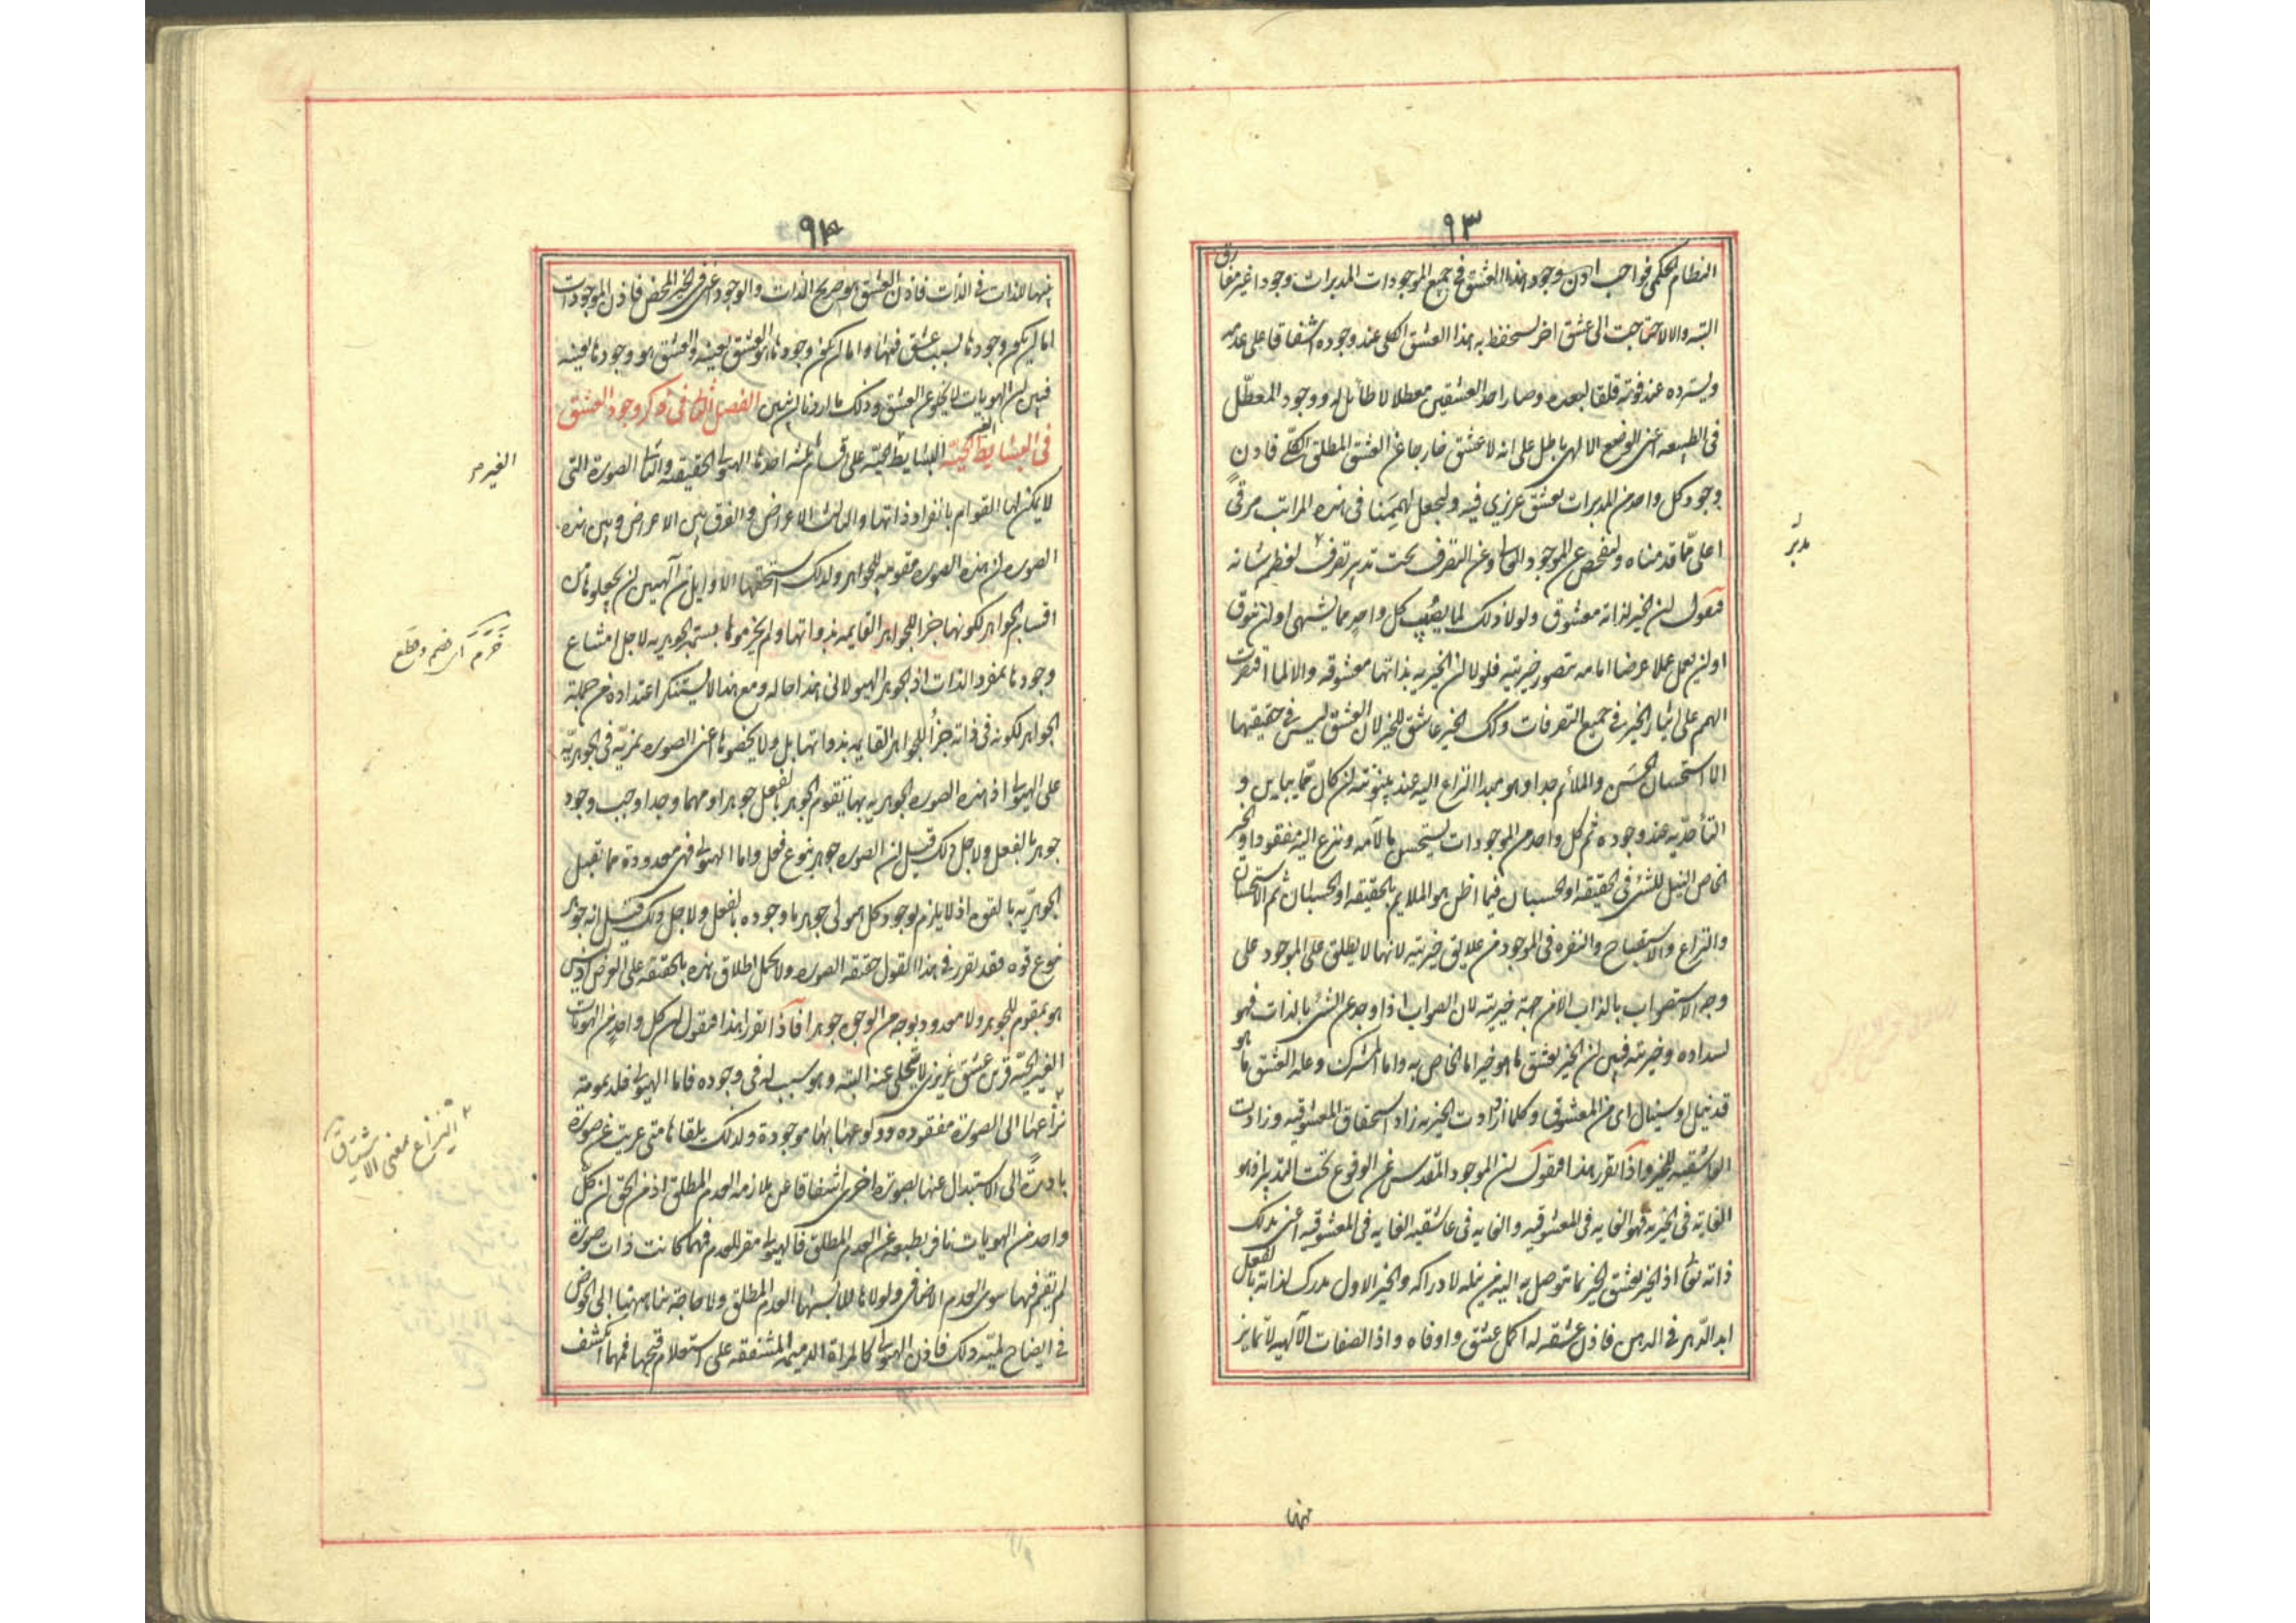 ٩٣
النظام الحكمى فواجب اذن وجود هذا العشق فى جميع الموجودات المدبرات وجودا غير مفارق
البته والا لاحتاجت الى عشق اخر لستحفظ به هذا العشق الكلى عند وجوده اشفاقا على عدمه
ويسترده عند فوته قلقا لبعده وصار احد العشقين معطلا لا طائل له ووجود المعطّل
فى الطبيعه اعنى الوضع الالهى باطل على انه لا عشق خارجا عن العشق المطلق الكلّى فاذن
وجود كل واحد من المدبرات بعشق غريزى فيه ولنجعل لهمتنا فى هذه المراتب مرقىً
اعلى ممّا قدمناه ولنفحص عن الموجود العالى وعن التصرف تحت تدبير تصرف لعظم شانه
مدبّر
فنقول ان الخير لذاته معشوق ولولا ذلك لما يصب كل واحدٍ مما يشتهى او ان يتوق
او ان يعمل عملا عرضا امامه يتصور خيريته فلولا ان الخيريه بذاتها معشوقه والا لما اقتصرت
الهمم على ايثار الخير فى جميع التصرفات وكك الخير عاشق للخير لان العشق ليس فى حقيقتها
الا استحسان الحسَن والملائم جدا وهو مبدا النزاع اليه عند بينونته ان كان ممّا يباين و
التأحّد به عند وجوده ثم كل واحد من الموجودات يستحسن ما لائمه وينزع اليه مفقودا والخير
الخاص النيل للشئى فى الحقيقه او الحسبان فيما اظن هو الملايم بالحقيقه او الحسبان ثم الاستحسان
والنزاع والاستقباح والنفره فى الموجود من علايق خيريته لانها لا يطلق على الموجود على
وجه الاستصواب بالذات الا من جهة خيريته لان الصواب اذا وجد عن الشئ بالذات فهو
لسداده وخيريته فبين ان الخير يعشق ما هو خير اما الخاص به واما المشترك وعله العشق ما هو
قد نيل او سينال اى من المعشوق وكلما ازدادت الخيريه زاد استحقاق المعشوقيه وزادت
العاشقيه للخير واذا تقرر هذا فنقول ان الموجود المقدس عن الوقوع تحت التدبير اذ هو
الغايه فى الخيريه فهو الغايه فى المعشوقيه والغايه فى عاشقيه الغايه فى المعشوقيه اعنى بذلك
ذاته تعالى اذ الخير يعشق الخير بما يتوصل به اليه من نيله لادراكه والخير الاول مدرك لذاته بالفعل
ابد الدّهر فى الدهر فاذن عشقه له اكمل عشق واوفاه واذ الصفات الآلهيه لا تمايز
٩٤
بينها للذات فى الذات فاذن العشق هو صريح الذات والوجود اعنى فى الخير المحض فاذن الموجودات
اما ان يكون وجودها لسبب عشق فيها واما ان يكون وجودها هو العشق بعينه والعشق هو وجودها بعينه
فبين ان الهويات لا تخلو عن العشق وذلك ما اردنا ان نبين الفصل الثانى فى ذكر وجود العشق
فى البسايط الغير الحيّه البسايط الغير الحيّه على اقسام ثلثه احدها الهيولى الحقيقيه والثانى الصورة التى
الغير م
لا يمكن لها القوام بانفراد ذاتها والثالث الاعراض والفرق بين الاعراض وبين هذه
الصوره ان هذه الصوره مقومه للجواهر ولذلك استحقها الاوايل من الآلهيين ان يجعلوها من
اقسام الجواهر لكونها جزأ للجواهر القايمه بذواتها ولم يخرموها بسمة الجوهريه لاجل امتناع
خَرَم اى خصم وقطع
وجودها بمفرد الذات اذ الجوهر الهيولانى هذا حاله ومع هذا لا يستنكر اعتداده من جملة
الجواهر لكونه فى ذاته جزأ للجواهر القايمه بذواتها بل ولا يخصوها اعنى الصوره بمزيّه فى الجوهريّه
على الهيولى اذ هذه الصوره الجوهريه بها يتقوم الجوهر بالفعل جوهرا ومهما وجد اوجب وجود
جوهر بالفعل ولاجل ذلك قيل ان الصوره جوهر بنوع فعل واما الهيولى فهى معدودة مما تقبل
الجوهريّه بالقوه اذ لا يلزم لوجود كل هيولى جوهر ما وجوده بالفعل ولاجل ذلك قيل انه جوهر
بنوع قوه فقد تقرر فى هذا القول حقيقه الصوره ولا يحمل اطلاق هذه بالحقيقه على العرض اذ ليس
هو بمقوم للجوهر ولا معدود بوجه من الوجوه جوهرا فاذا تقرر هذا فنقول ان كل واحدٍ من الهويات
الغير الحيّه قرين عشق غريزى لا يتخلى عنه البتّه وهو سبب له فى وجوده فاما الهيولى فلديمومة
نزاعها الى الصورة مفقوده وولوعها بها موجودة ولذلك يلقاها متى عريت عن صورة
٢ النزاع بمعنى الاشتياق
بادرت الى الاستبدال عنها بصورة اخرى اشفاقا عن ملازمه العدم المطلق اذ من الحق ان كل
واحد من الهويات نافر بطبعه عن العدم المطلق فالهيولى مقر للعدم فمهما كانت ذات صورة
لم يقم فيها سوى العدم الاضافى ولولاها للابسها العدم المطلق ولا حاجة بنا ههنا الى الخوض
فى ايضاح لميّه ذلك فاذن الهيولى كالمراة الدميمه المشفقه على استعلام قبحها فمهما انكشف
بينها